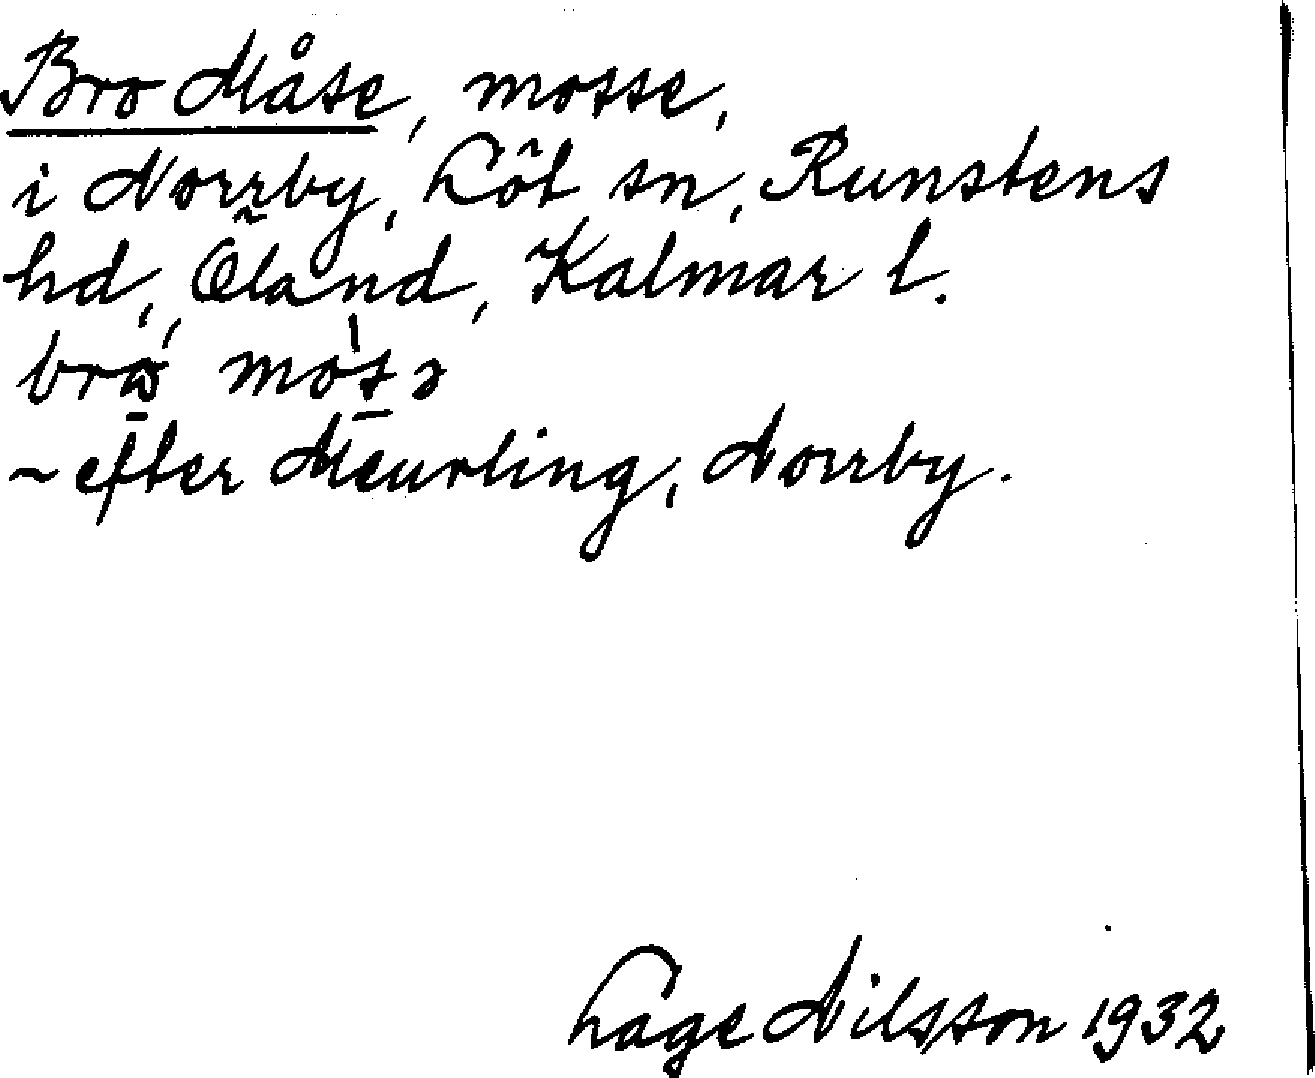 Bro Måse, mosse,
i Norrby, Löt sn, Runstens
hd, Öland, Kalmar l.
~ efter Meurling, Norrby.
Lage Nilsson 1932